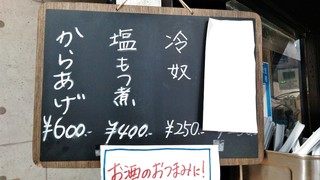 冷奴
¥250.-
塩もつ煮
¥400.-
からあげ
¥600.-
お酒のおつまみに!